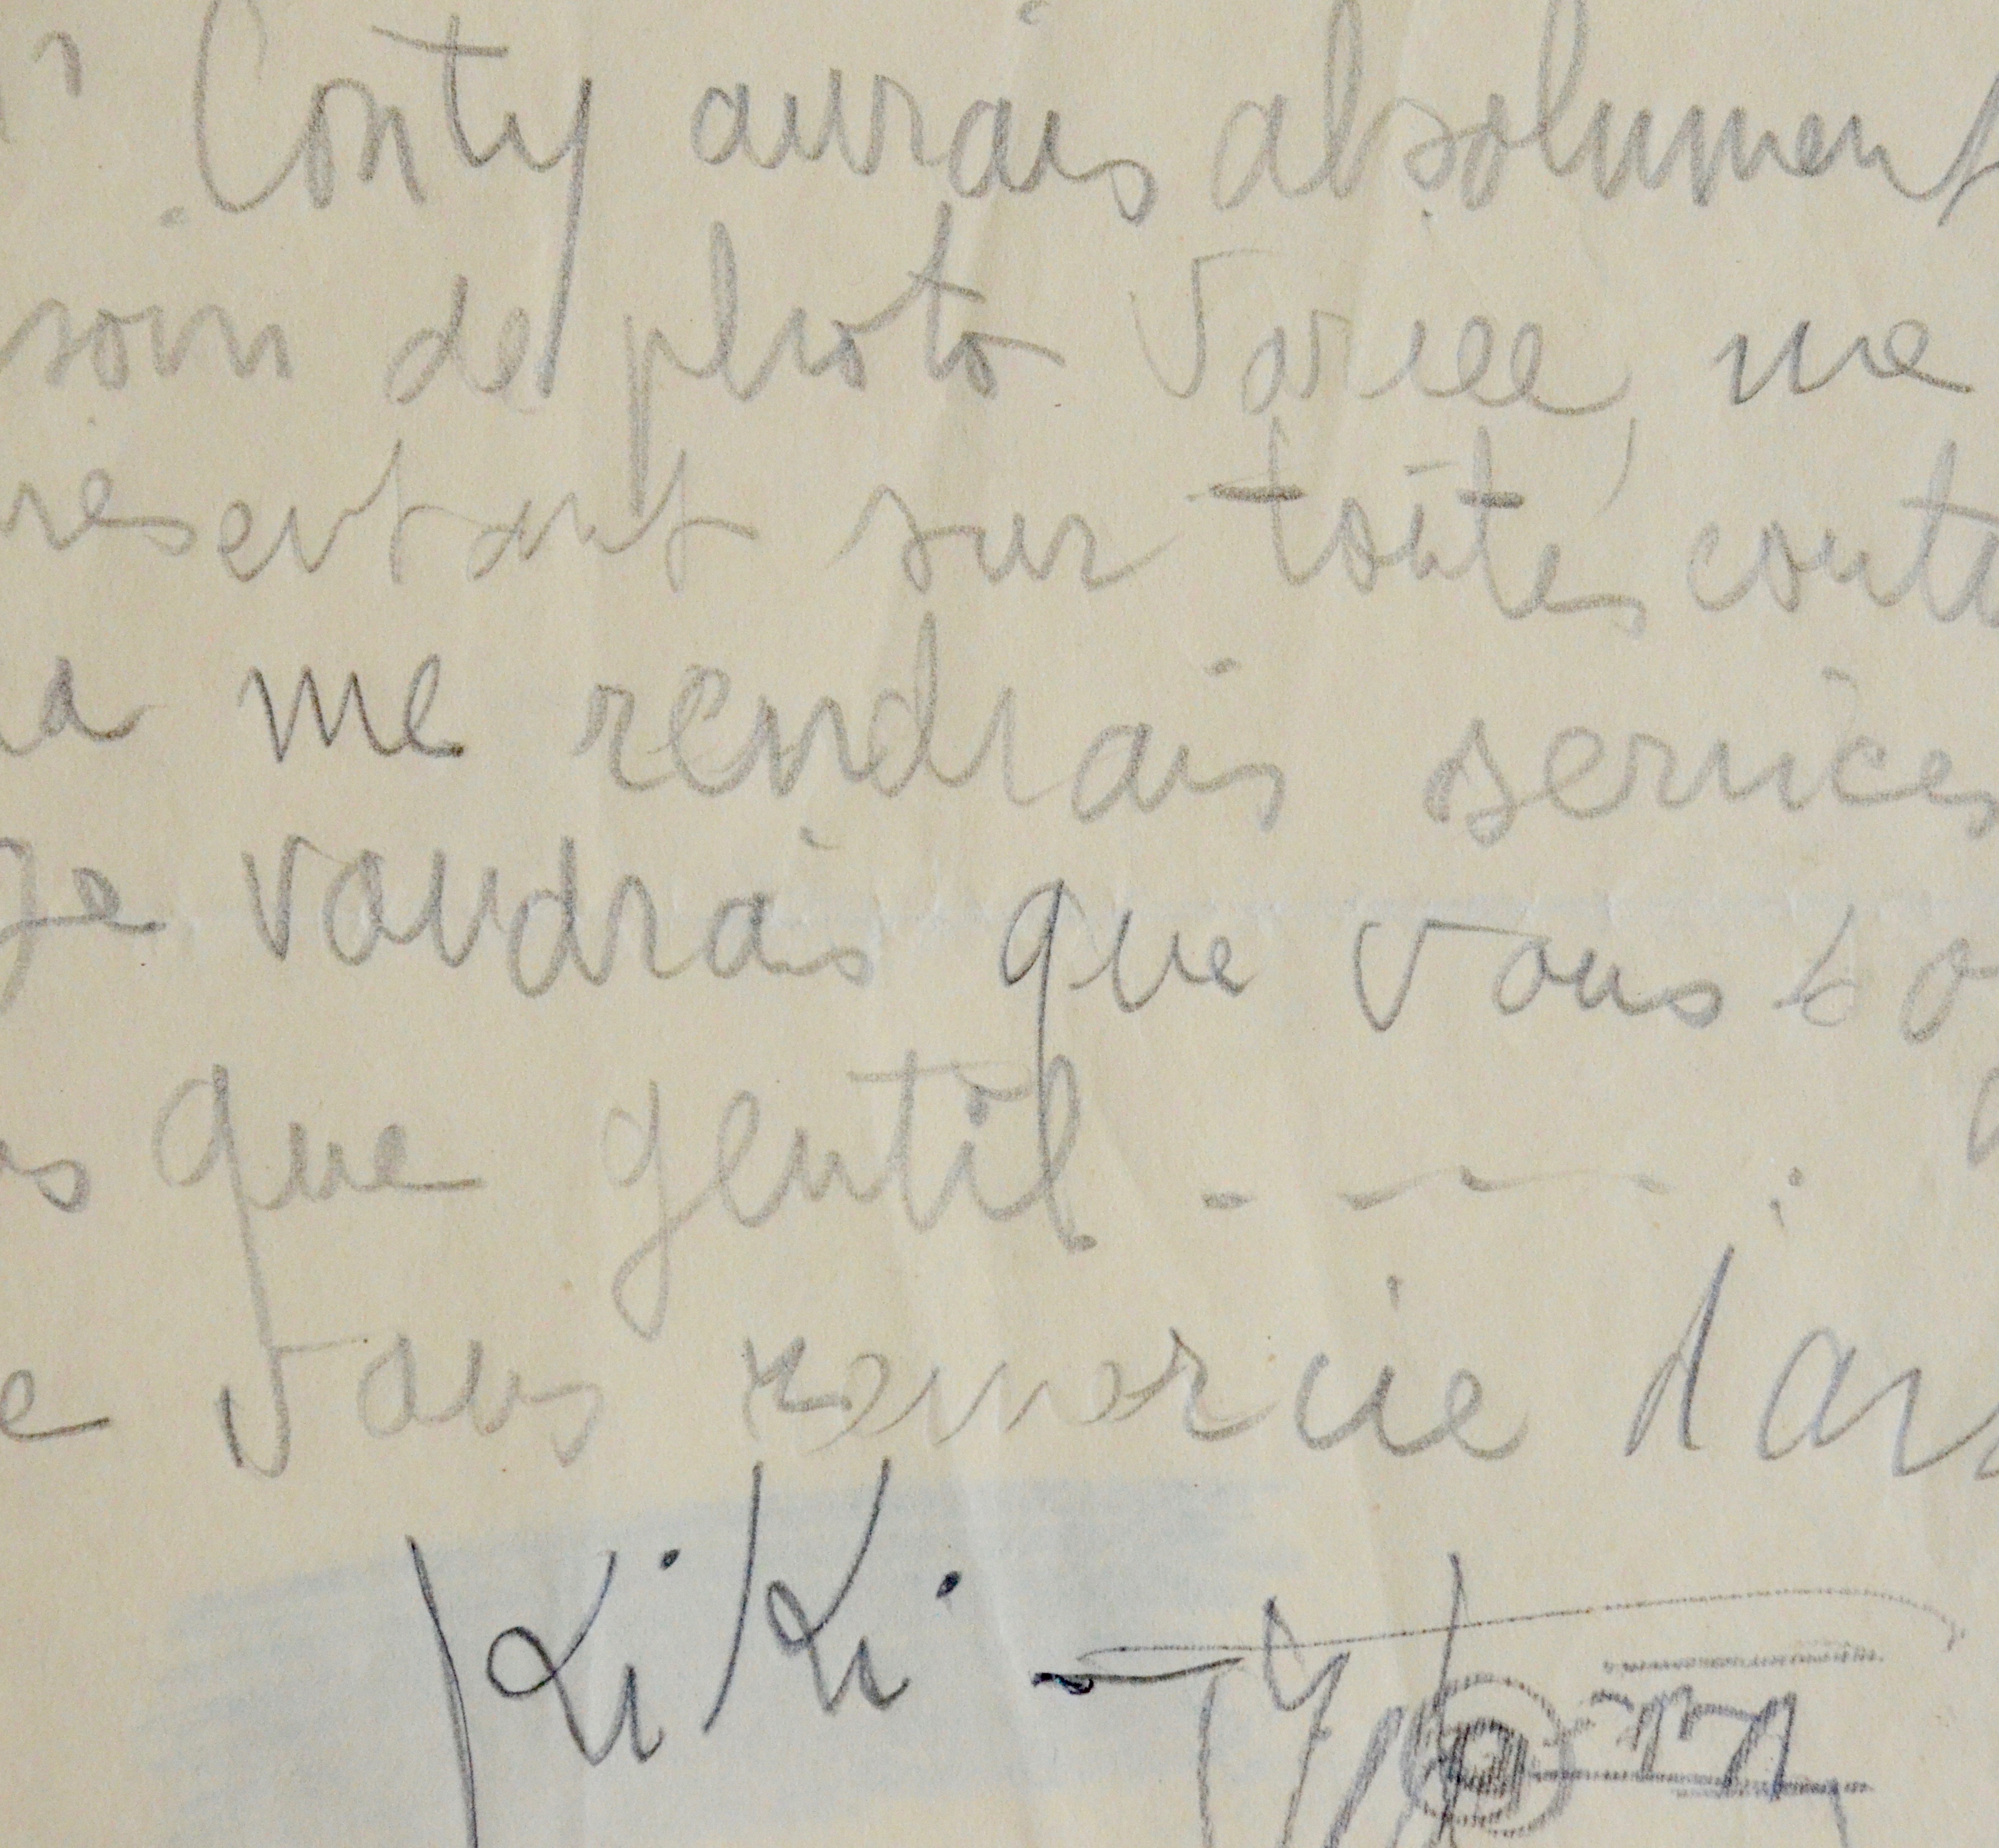 Conty aurais absolument
soin de photo variee, me
resentant sur toutes coutu
a me rendrais services
Je voudrais que vous so
s que gentil - - - - .
e vous remercie d'av
Kiki